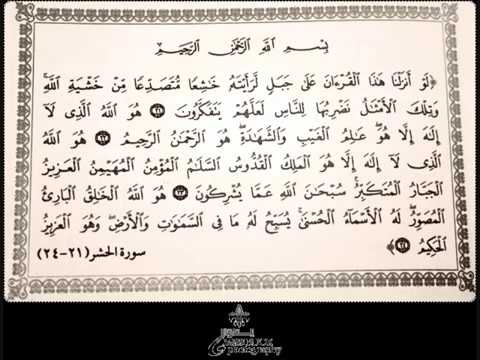 بِسْمِ ٱللَّهِ ٱلرَّحْمَٰنِ ٱلرَّحِيمِ
﴿لَوْ أَنزَلْنَا هَٰذَا ٱلْقُرْءَانَ عَلَىٰ جَبَلٍ لَّرَأَيْتَهُۥ خَٰشِعًا مُّتَصَدِّعًا مِّنْ خَشْيَةِ ٱللَّهِۚ
وَتِلْكَ ٱلْأَمْثَٰلُ نَضْرِبُهَا لِلنَّاسِ لَعَلَّهُمْ يَتَفَكَّرُونَ ٢١ هُوَ ٱللَّهُ ٱلَّذِى لَآ
إِلَٰهَ إِلَّا هُوَۖ عَٰلِمُ ٱلْغَيْبِ وَٱلشَّهَٰدَةِۖ هُوَ ٱلرَّحْمَٰنُ ٱلرَّحِيمُ ٢٢ هُوَ ٱللَّهُ
ٱلَّذِى لَآ إِلَٰهَ إِلَّا هُوَ ٱلْمَلِكُ ٱلْقُدُّوسُ ٱلسَّلَٰمُ ٱلْمُؤْمِنُ ٱلْمُهَيْمِنُ ٱلْعَزِيزُ
ٱلْجَبَّارُ ٱلْمُتَكَبِّرُۚ سُبْحَٰنَ ٱللَّهِ عَمَّا يُشْرِكُونَ ٢٣ هُوَ ٱللَّهُ ٱلْخَٰلِقُ ٱلْبَارِئُ
ٱلْمُصَوِّرُۖ لَهُ ٱلْأَسْمَآءُ ٱلْحُسْنَىٰۚ يُسَبِّحُ لَهُۥ مَا فِى ٱلسَّمَٰوَٰتِ وَٱلْأَرْضِۖ وَهُوَ ٱلْعَزِيزُ
ٱلْحَكِيمُ ٢٤﴾ سورة الحشر (٢١-٢٤)
photography